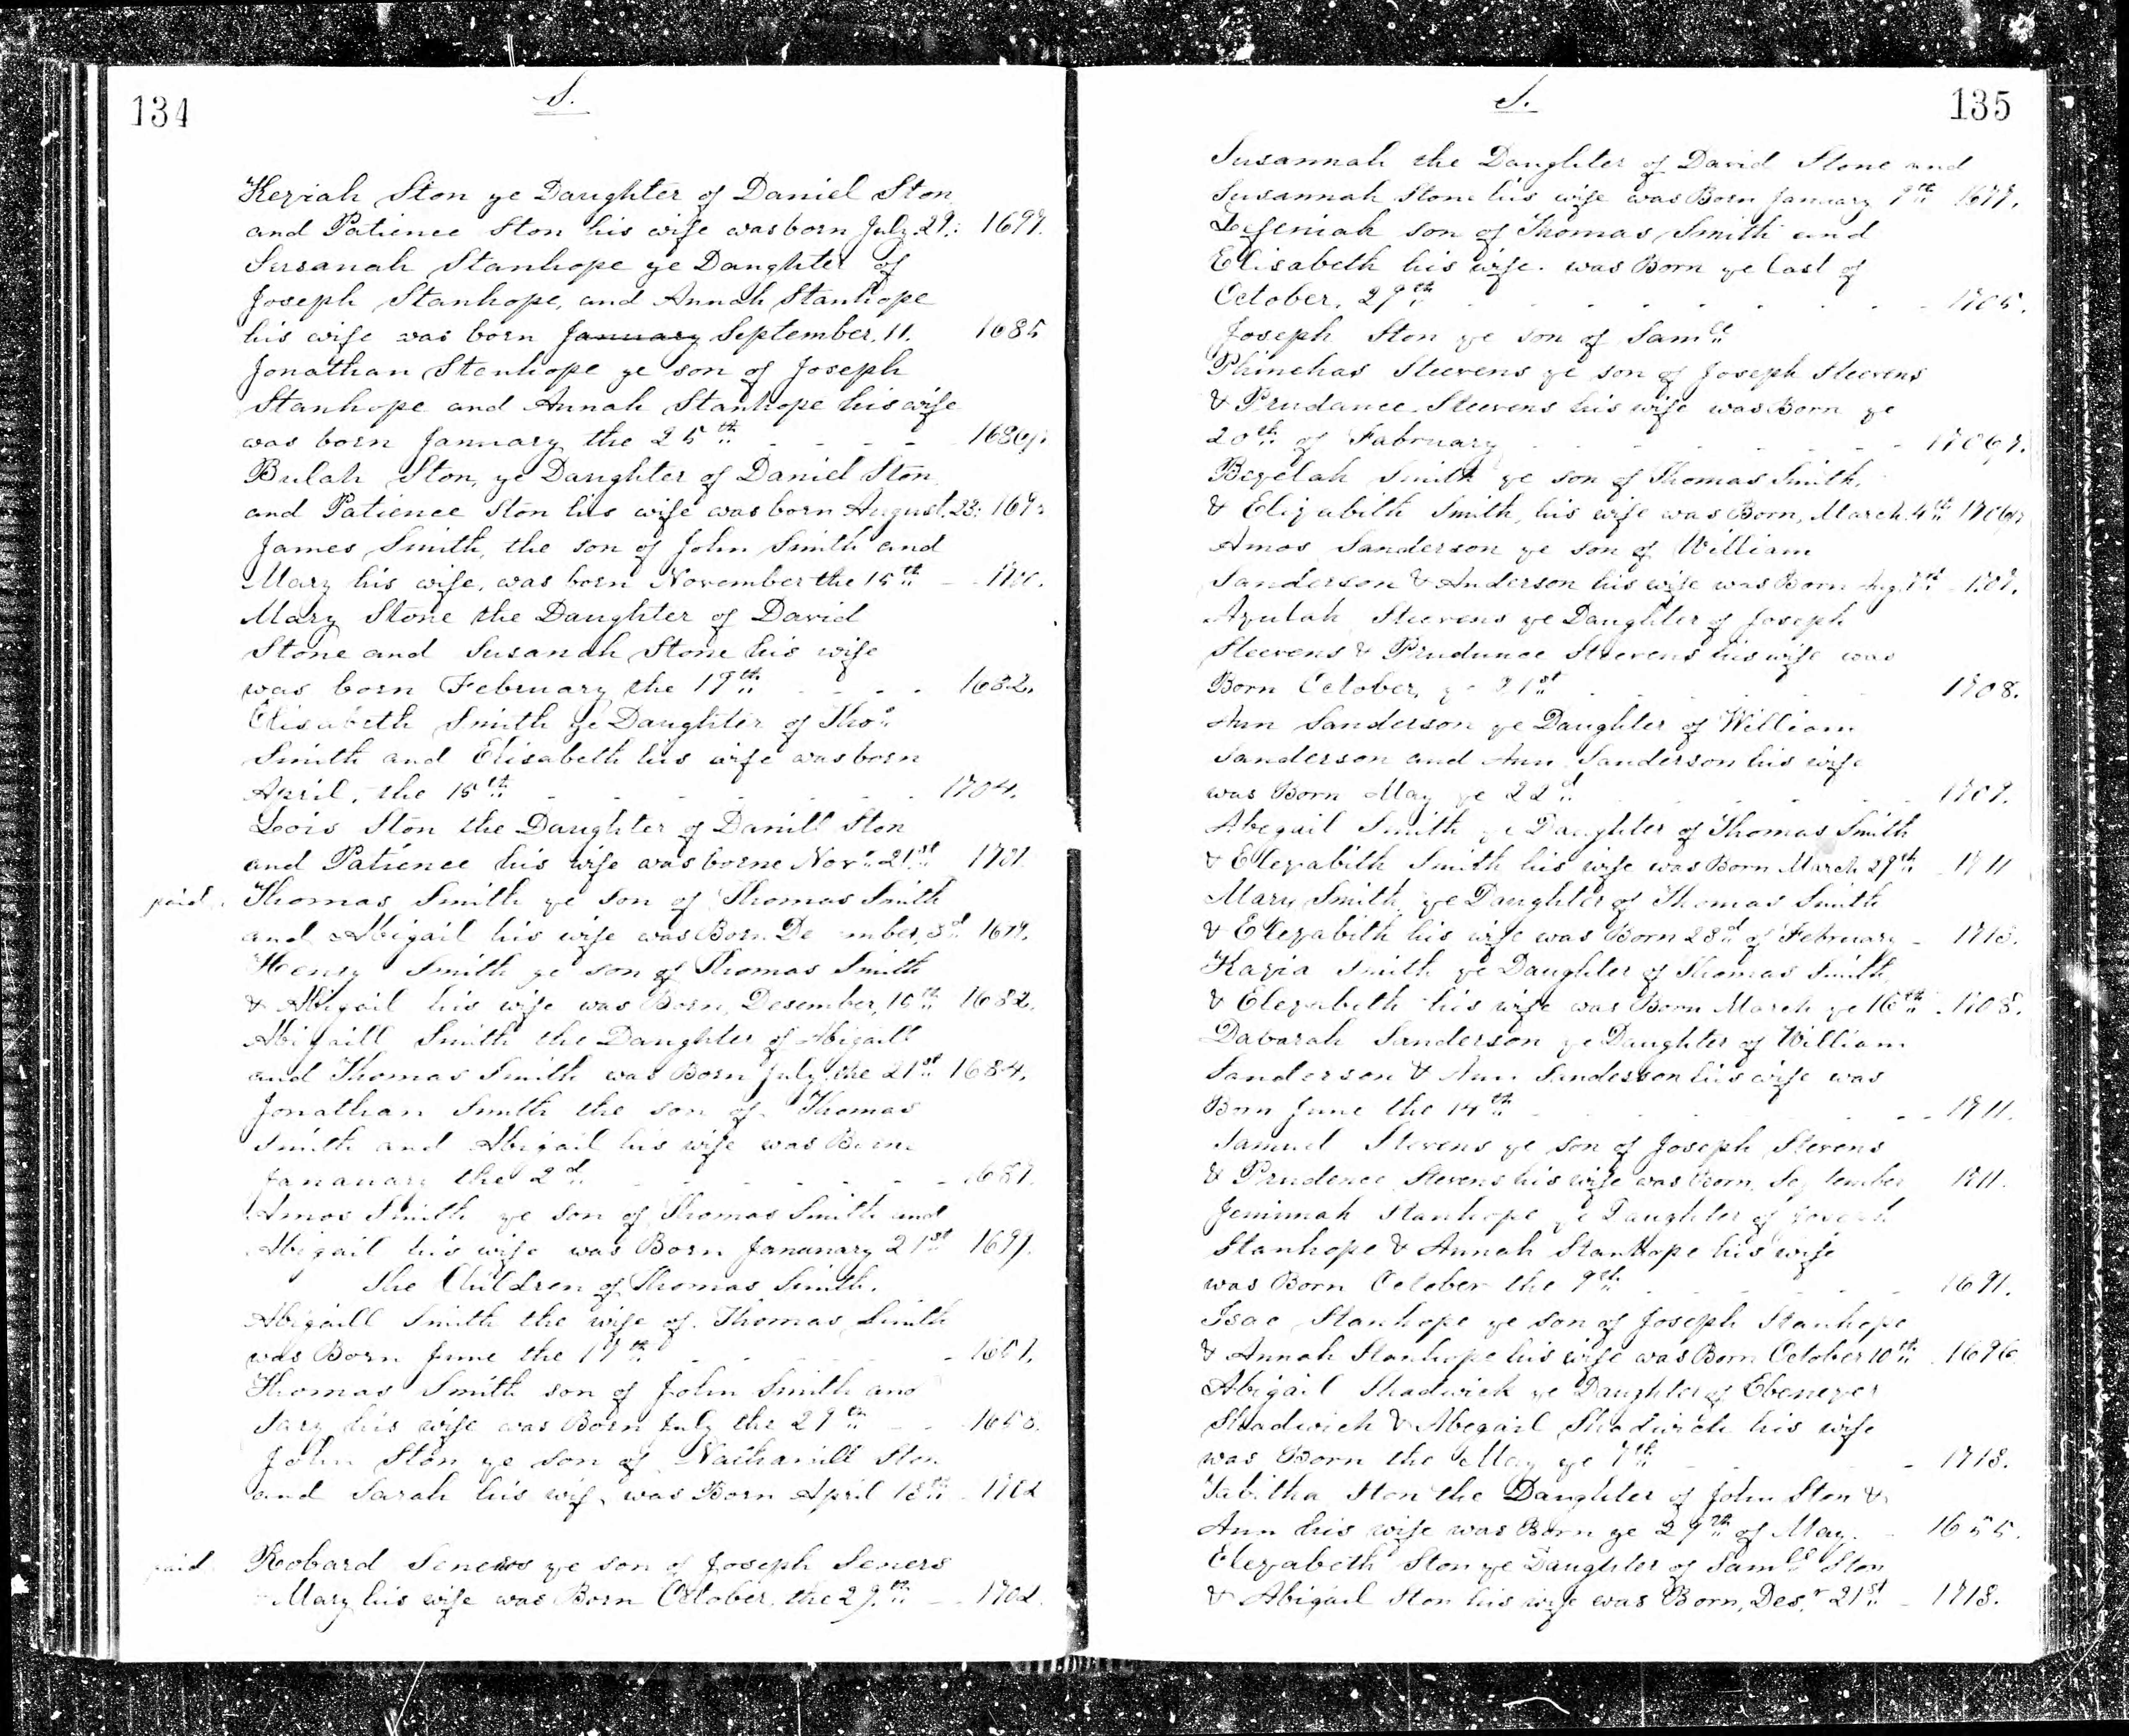 134
S.
Keziah Ston ye Daughter of Daniel Ston
and Patience Ston his wife was born July 29: 1697.
Susanah Stanhope ye Daughter of
Joseph Stanhope, and Annah Stanhope
his wife was born January September, 11. 1685
Jonathan Stenhope ye son of Joseph
Stanhope and Annah Stanhope his wife
was born January the 25th
Bulah Ston, ye Daughter of Daniel Ston
and Patience Ston his wife was born August, 23:
James Smith, the son of John Smith and
Mary his wife, was born November the 15th
Mary Stone the Daughter of David
Stone and Susanah Stone his wife
was born February the 19th
Elisabeth Smith ye Daughter of Thos
Smith and Elisabeth his wife was born
April, the 15th 1704.
Lois Ston the Daughter of Danill Ston
and Patience his wife was borne Novr 21st 1701.
paid. Thomas Smith ye son of Thomas Smith
and Abigail his wife was Born De mber, 3d
Henry Smith ye son of Thomas Smith
& Abigail his wife was Born, Desember, 10th 1682.
Abigaill Smith the Daughter of Abigaill
and Thomas Smith was Born July the 21st 1684.
Jonathan Smith the son of Thomas
Smith and Abigail his wife was Borne
Jananary the 2d
Amos Smith ye son of Thomas Smith and
Abigail his wife was Born Jananary 21st 1699.
The Children of Thomas Smith.
Abigaill Smith the wife of Thomas Smith
was Born June the 17th
Thomas Smith son of John Smith and
Sary his wife was Born July the 29th 1658.
John Ston ye son of Nathanill Ston
and Sarah his wife was Born April 18th 1702
paid. Robard Seners ye son of Joseph Seners
Mary his wife was Born October. the 29th 1702.
135
S.
Susannah the Daughter of David Stone and
Susannah Stone his wife was Born January 9th
Zefeniah son of Thomas Smith and
Elisabeth his wife. was Born ye last of
October, 29th 1705.
Joseph Ston ye son of Samll
Phinehas Steevens ye son of Joseph Steevens
& Prudance Steevens his wife was Born ye
20th of Fabruary 1706/7.
Bezelah Smith ye son of Thomas Smith,
& Elizabith Smith, his wife was Born, March 4th 1706/7
Amos Sanderson ye son of William
Sanderson & Anderson his wife was Born Aug.
Azulah Steevens ye Daughter of Joseph
Steevens & Prudunce Steevens his wife was
Born October, ye 31st 1708.
Ann Sanderson ye Daughter of William
Sanderson and Ann Sanderson his wife
was Born May ye 22d 1709.
Abegail Smith ye Daughter of Thomas Smith
& Elezabith Smith his wife was Born March 29th 1711
Mary Smith, ye Daughter of Thomas Smith
& Elezabith his wife was Born 28d of February 1713.
Kazia Smith ye Daughter of Thomas Smith,
& Elezabeth his wife was Born March ye 16th 1708.
Dabarah Sanderson ye Daughter of William
Sanderson & Ann Sanderson his wife was
Born June the 14th 1711.
Samuel Stevens ye son of Joseph Stevens
& Prudence Stevens his wife was Born, September 1711.
Jemimah Stanhope ye Daughter of Joseph
Stanhope & Annah Stanhope his wife
was Born October the 9th 1691.
Isac Stanhope ye son of Joseph Stanhope
& Annah Stanhope his wife was Born October 10th 1696
Abigail Shadwick ye Daughter of Ebenezer
Shadwick & Abegail Shadwick his wife
was Born the May ye 7th 1718.
Tabitha Ston the Daughter of John Ston &
Ann his wife was Born ye 29th of May. 1655.
Elezabeth Ston ye Daughter of Samll Ston
& Abigail Ston his wife was Born, Desr 21st 1713.